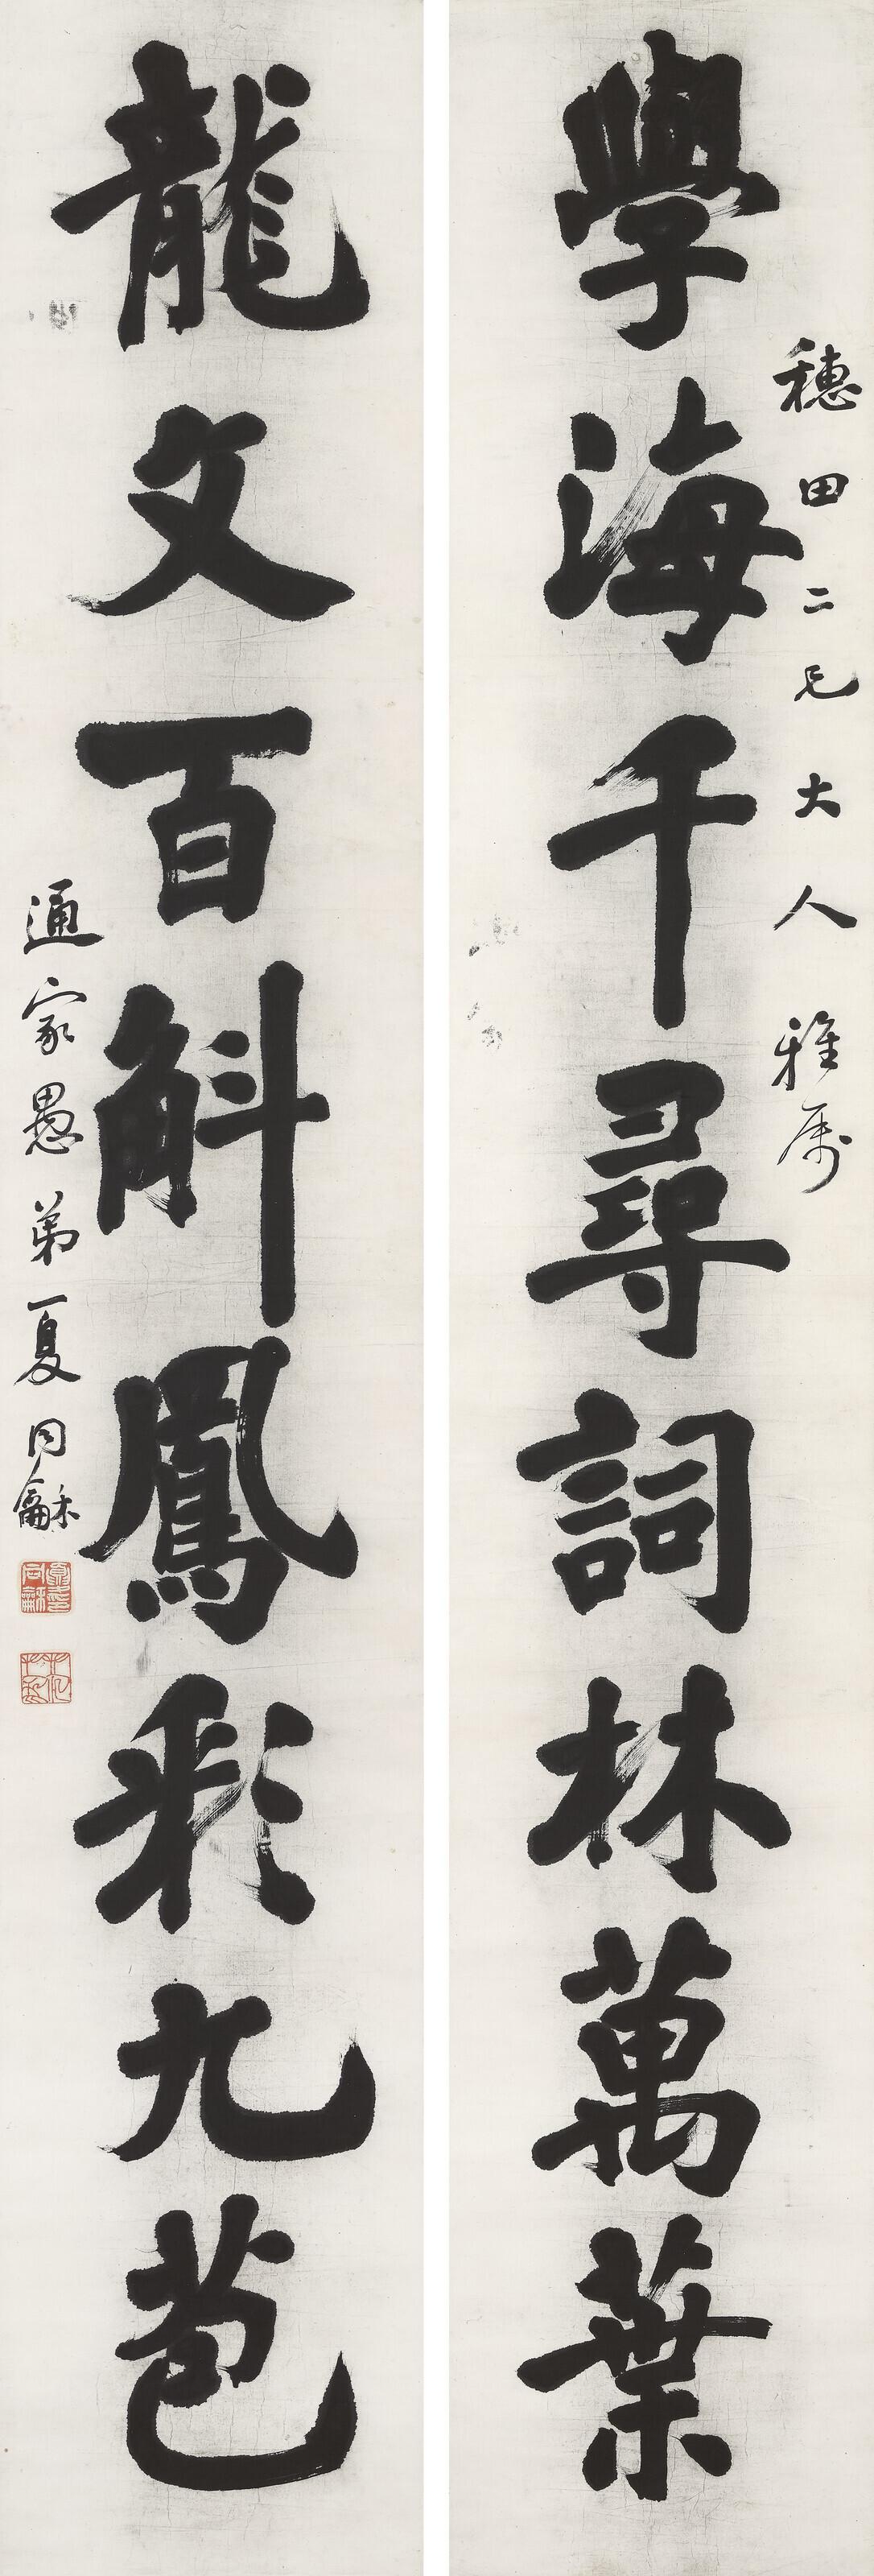 穗田二兄大人雅属
學海千尋詞林萬葉
龍文百斛鳳彩九苞
通家愚弟夏同龢